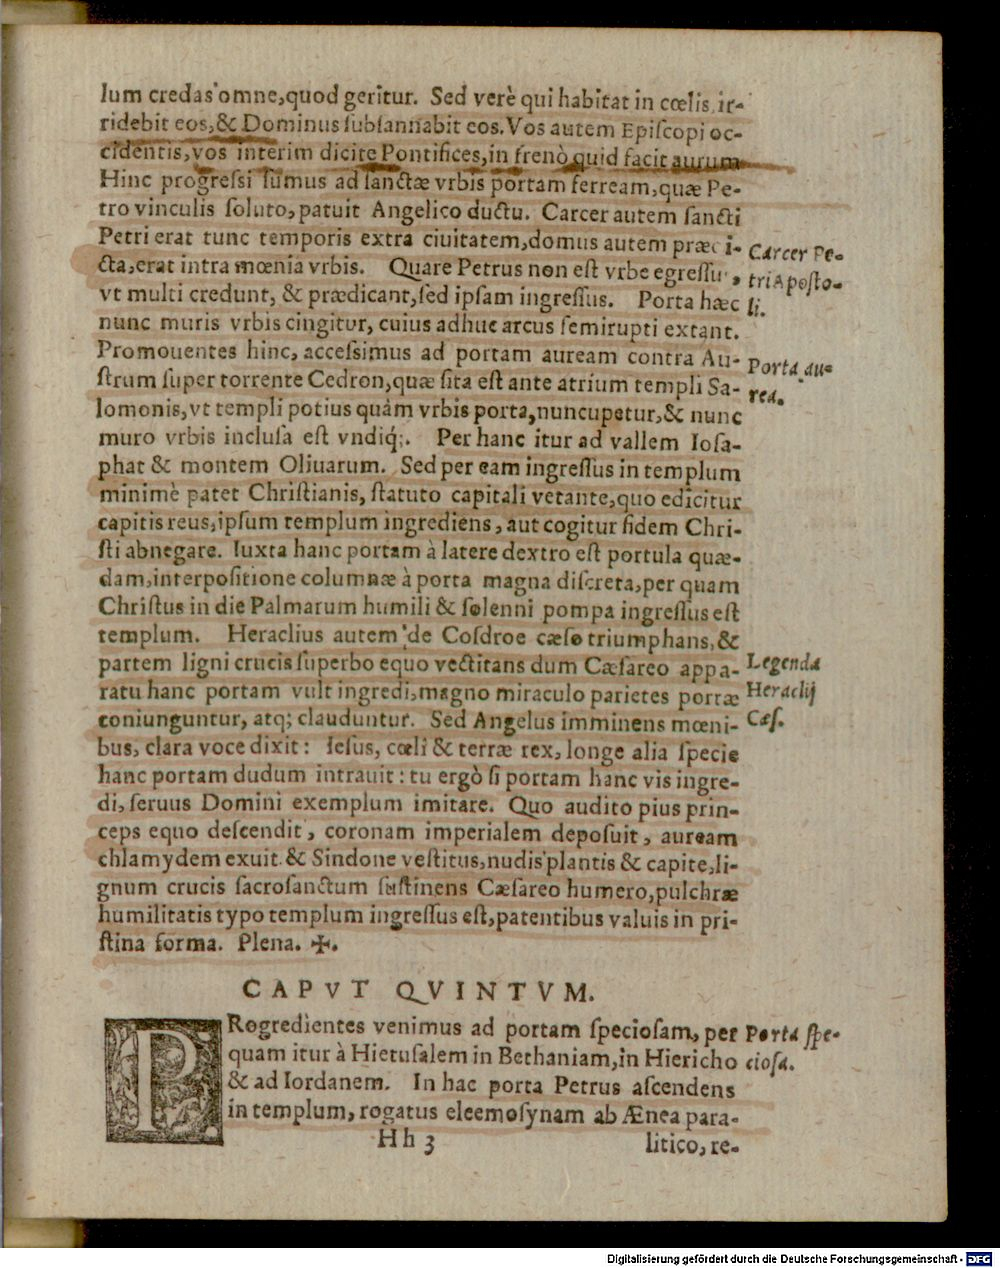 lum credas omne, quod geritur. Sed verè qui habitat in cœlis, ir-
ridebit eos, & Dominus subsannabit eos. Vos autem Episcopi oc-
cidentis, vos interim dicite Pontifices, in frenò quid facit aurum
Hinc progressi sumus ad sanctæ vrbis portam ferream, quæ Pe-
tro vinculis soluto, patuit Angelico ductu. Carcer autem sancti
Petri erat tunc temporis extra ciuitatem, domus autem præci-
Carcer Pe-
cta, erat intra mœnia vrbis. Quare Petrus non est vrbe egressus,
tri Aposto-
vt multi credunt, & prædicant, sed ipsam ingressus. Porta hæc
li.
nunc muris vrbis cingitur, cuius adhuc arcus semirupti extant.
Promouentes hinc, accessimus ad portam auream contra Au-
Porta au-
strum super torrente Cedron, quæ sita est ante atrium templi Sa-
rea.
lomonis, vt templi potius quàm vrbis porta, nuncupetur, & nunc
muro vrbis inclusa est vndiq;. Per hanc itur ad vallem Iosa-
phat & montem Oliuarum. Sed per eam ingressus in templum
minimè patet Christianis, statuto capitali vetante, quo edicitur
capitis reus, ipsum templum ingrediens, aut cogitur fidem Chri-
sti abnegare. Iuxta hanc portam à latere dextro est portula quæ-
dam, interpositione columnæ à porta magna discreta, per quam
Christus in die Palmarum humili & solenni pompa ingressus est
templum. Heraclius autem de Cosdroe cæso triumphans, &
partem ligni crucis superbo equo vectitans dum Cæsareo appa-
Legenda
ratu hanc portam vult ingredi, magno miraculo parietes portæ
Heraclij
coniunguntur, atq; clauduntur. Sed Angelus imminens mœni-
Cæs.
bus, clara voce dixit: Iesus, cœli & terræ rex, longe alia specie
hanc portam dudum intrauit: tu ergò si portam hanc vis ingre-
di, seruus Domini exemplum imitare. Quo audito pius prin-
ceps equo descendit, coronam imperialem deposuit, auream
chlamydem exuit & Sindone vestitus, nudis plantis & capite, li-
gnum crucis sacrosanctum sustinens Cæsareo humero, pulchræ
humilitatis typo templum ingressus est, patentibus valuis in pri-
stina forma. Plena. ✠.
CAPVT QVINTVM.
PRogredientes venimus ad portam speciosam, per
Porta spe-
quam itur à Hierusalem in Bethaniam, in Hiericho
ciosa.
& ad Iordanem. In hac porta Petrus ascendens
in templum, rogatus eleemosynam ab Ænea para-
Hh 3
litico, re-
Digitalisierung gefördert durch die Deutsche Forschungsgemeinschaft - DFG